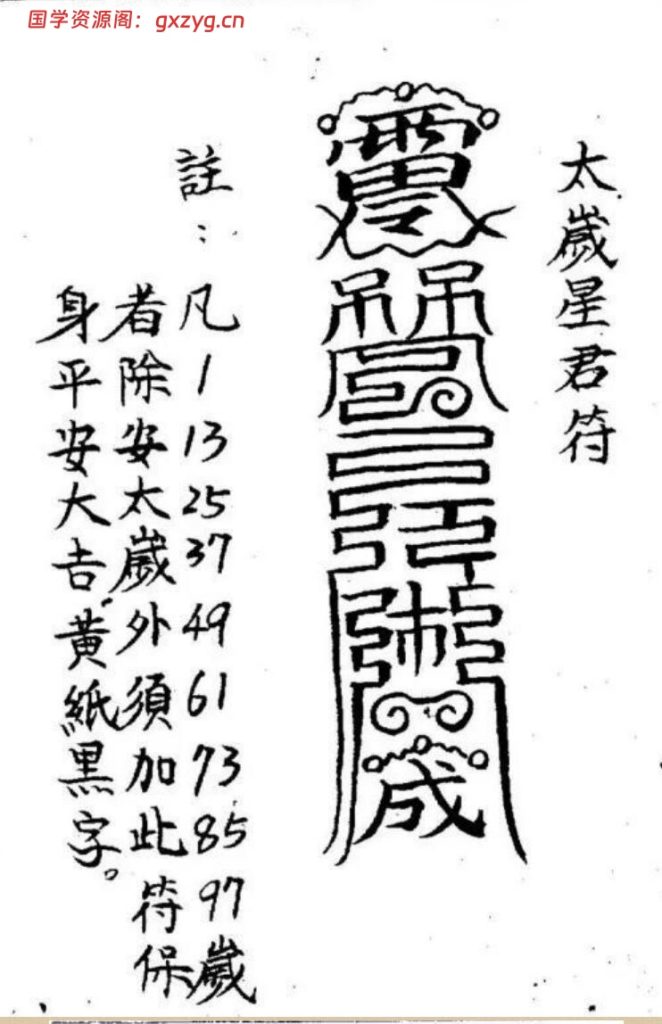 国学资源阁：gxzyg.cn
太歲星君符
註：凡1 13 25 37 49 61 73 85 97歲
者除安太歲外須加此符保
身平安大吉。黃紙黑字。